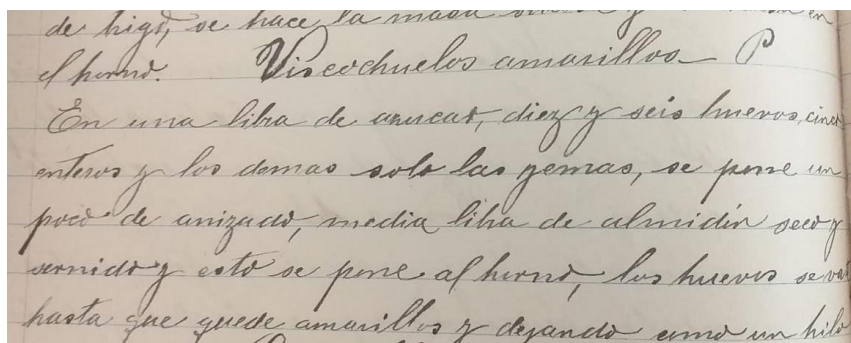 de higo, se hace la masa y en
el horno. Viscochuelos amarillos P
En una libra de azucar, diez y seis huevos, cinco
enteros y los demas solo las yemas, se pone un
poco de anizado, media libra de almidón seco y
sernido y esto se pone al horno, los huevos se vai
hasta que quede amarillos y dejando como un hilo